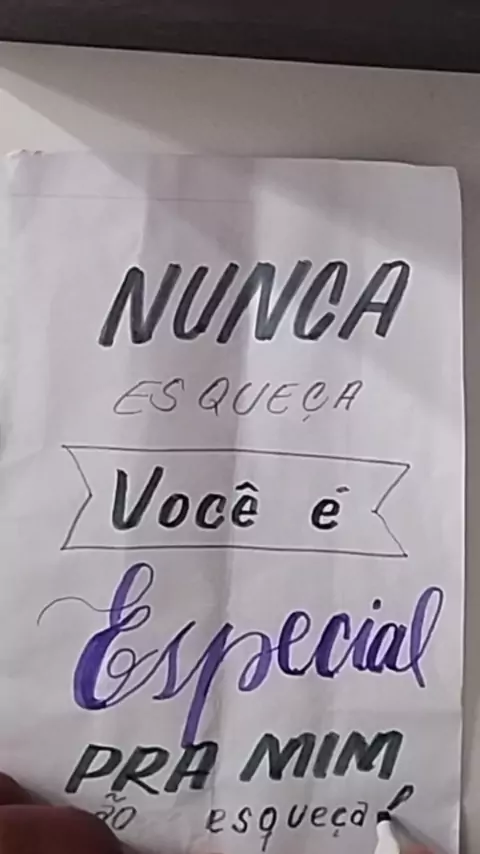 NUNCA
ESQUEÇA
Você é
Especial
PRA MIM
ão esqueça!